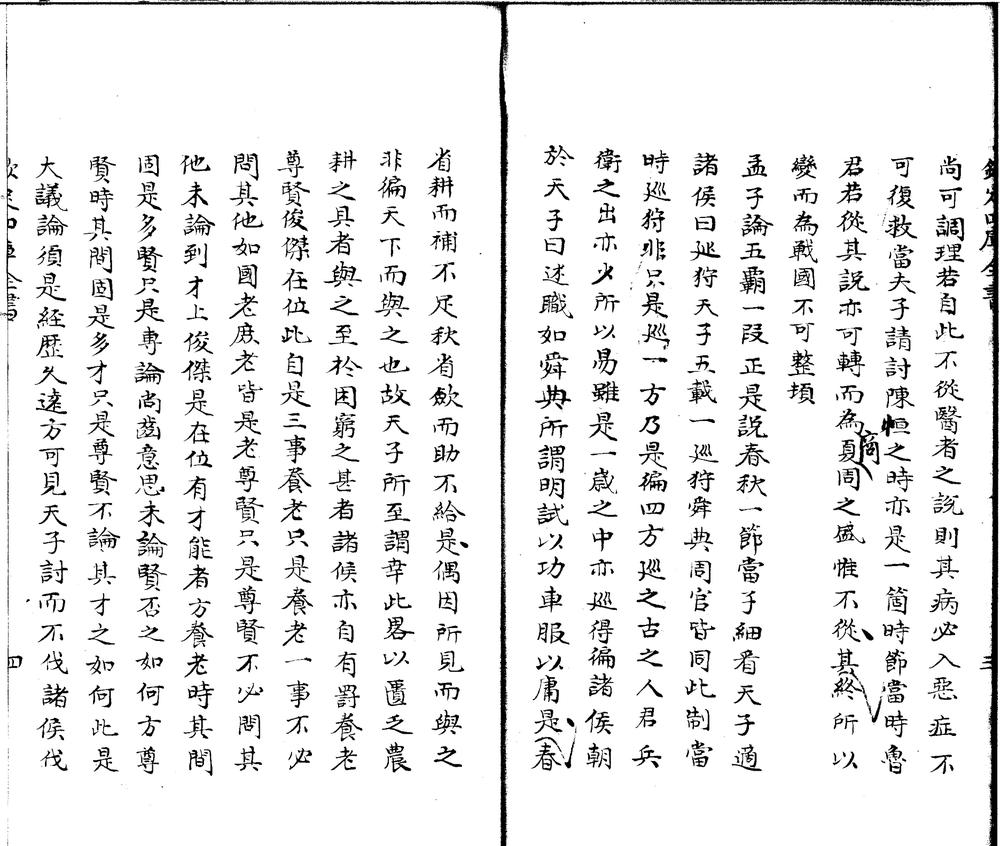 欽定四庫全書
三
尚可調理若自此不從醫者之說則其病必入惡症不
可復救當夫子請討陳恒之時亦是一箇時節當時魯
君若從其說亦可轉而為夏商周之盛惟不從其終所以
變而為戰國不可整頓
孟子論五霸一段正是說春秋一節當子細看天子適
諸侯曰廵狩天子五載一廵狩舜典周官皆同此制當
時廵狩非只是廵一方乃是徧四方廵之古之人君兵
衛之出亦少所以易雖是一嵗之中亦廵得徧諸侯朝
於天子曰述職如舜典所謂明試以功車服以庸是春
省耕而補不足秋省斂而助不給是偶因所見而與之
非徧天下而與之也故天子所至謂幸此畧以置之農
耕之具者與之至於困窮之甚者諸侯亦自有罸養老
尊賢俊傑在位此自是三事養老只是養老一事不必
問其他如國老庶老皆是老尊賢只是尊賢不必問其
他未論到才上俊傑是在位有才能者方養老時其間
固是多賢只是專論尚齒意思未論賢否之如何方尊
賢時其間固是多才只是尊賢不論其才之如何此是
大議論須是經歷久遠方可見天子討而不伐諸侯伐
欽定四庫全書
四